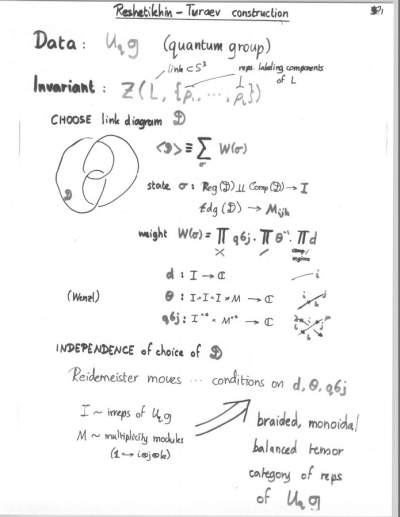 Reshetikhin - Turaev construction
Data: U_q g (quantum group)
link ⊂ S³
reps. labeling components of L
Invariant: Z(L, {ρ₁, ..., ρ_l})
CHOOSE link diagram D
<D> ≡ Σ_σ W(σ)
D
state σ: Reg(D) ⊔ Comp(D) → I
Edg(D) → M_ijk
weight W(σ) = Π q6j · Π θ⁻¹ · Π d
comp/
regions
d : I → ℂ
i
(Wenzl)
θ : I×I×I×M → ℂ
q6j : I^×6 × M^×4 → ℂ
INDEPENDENCE of choice of D
Reidemeister moves ... conditions on d, θ, q6j
I ~ irreps of U_q g
M ~ multiplicity modules
(1 → i⊗j⊗k)
braided, monoidal
balanced tensor
category of reps
of U_q g